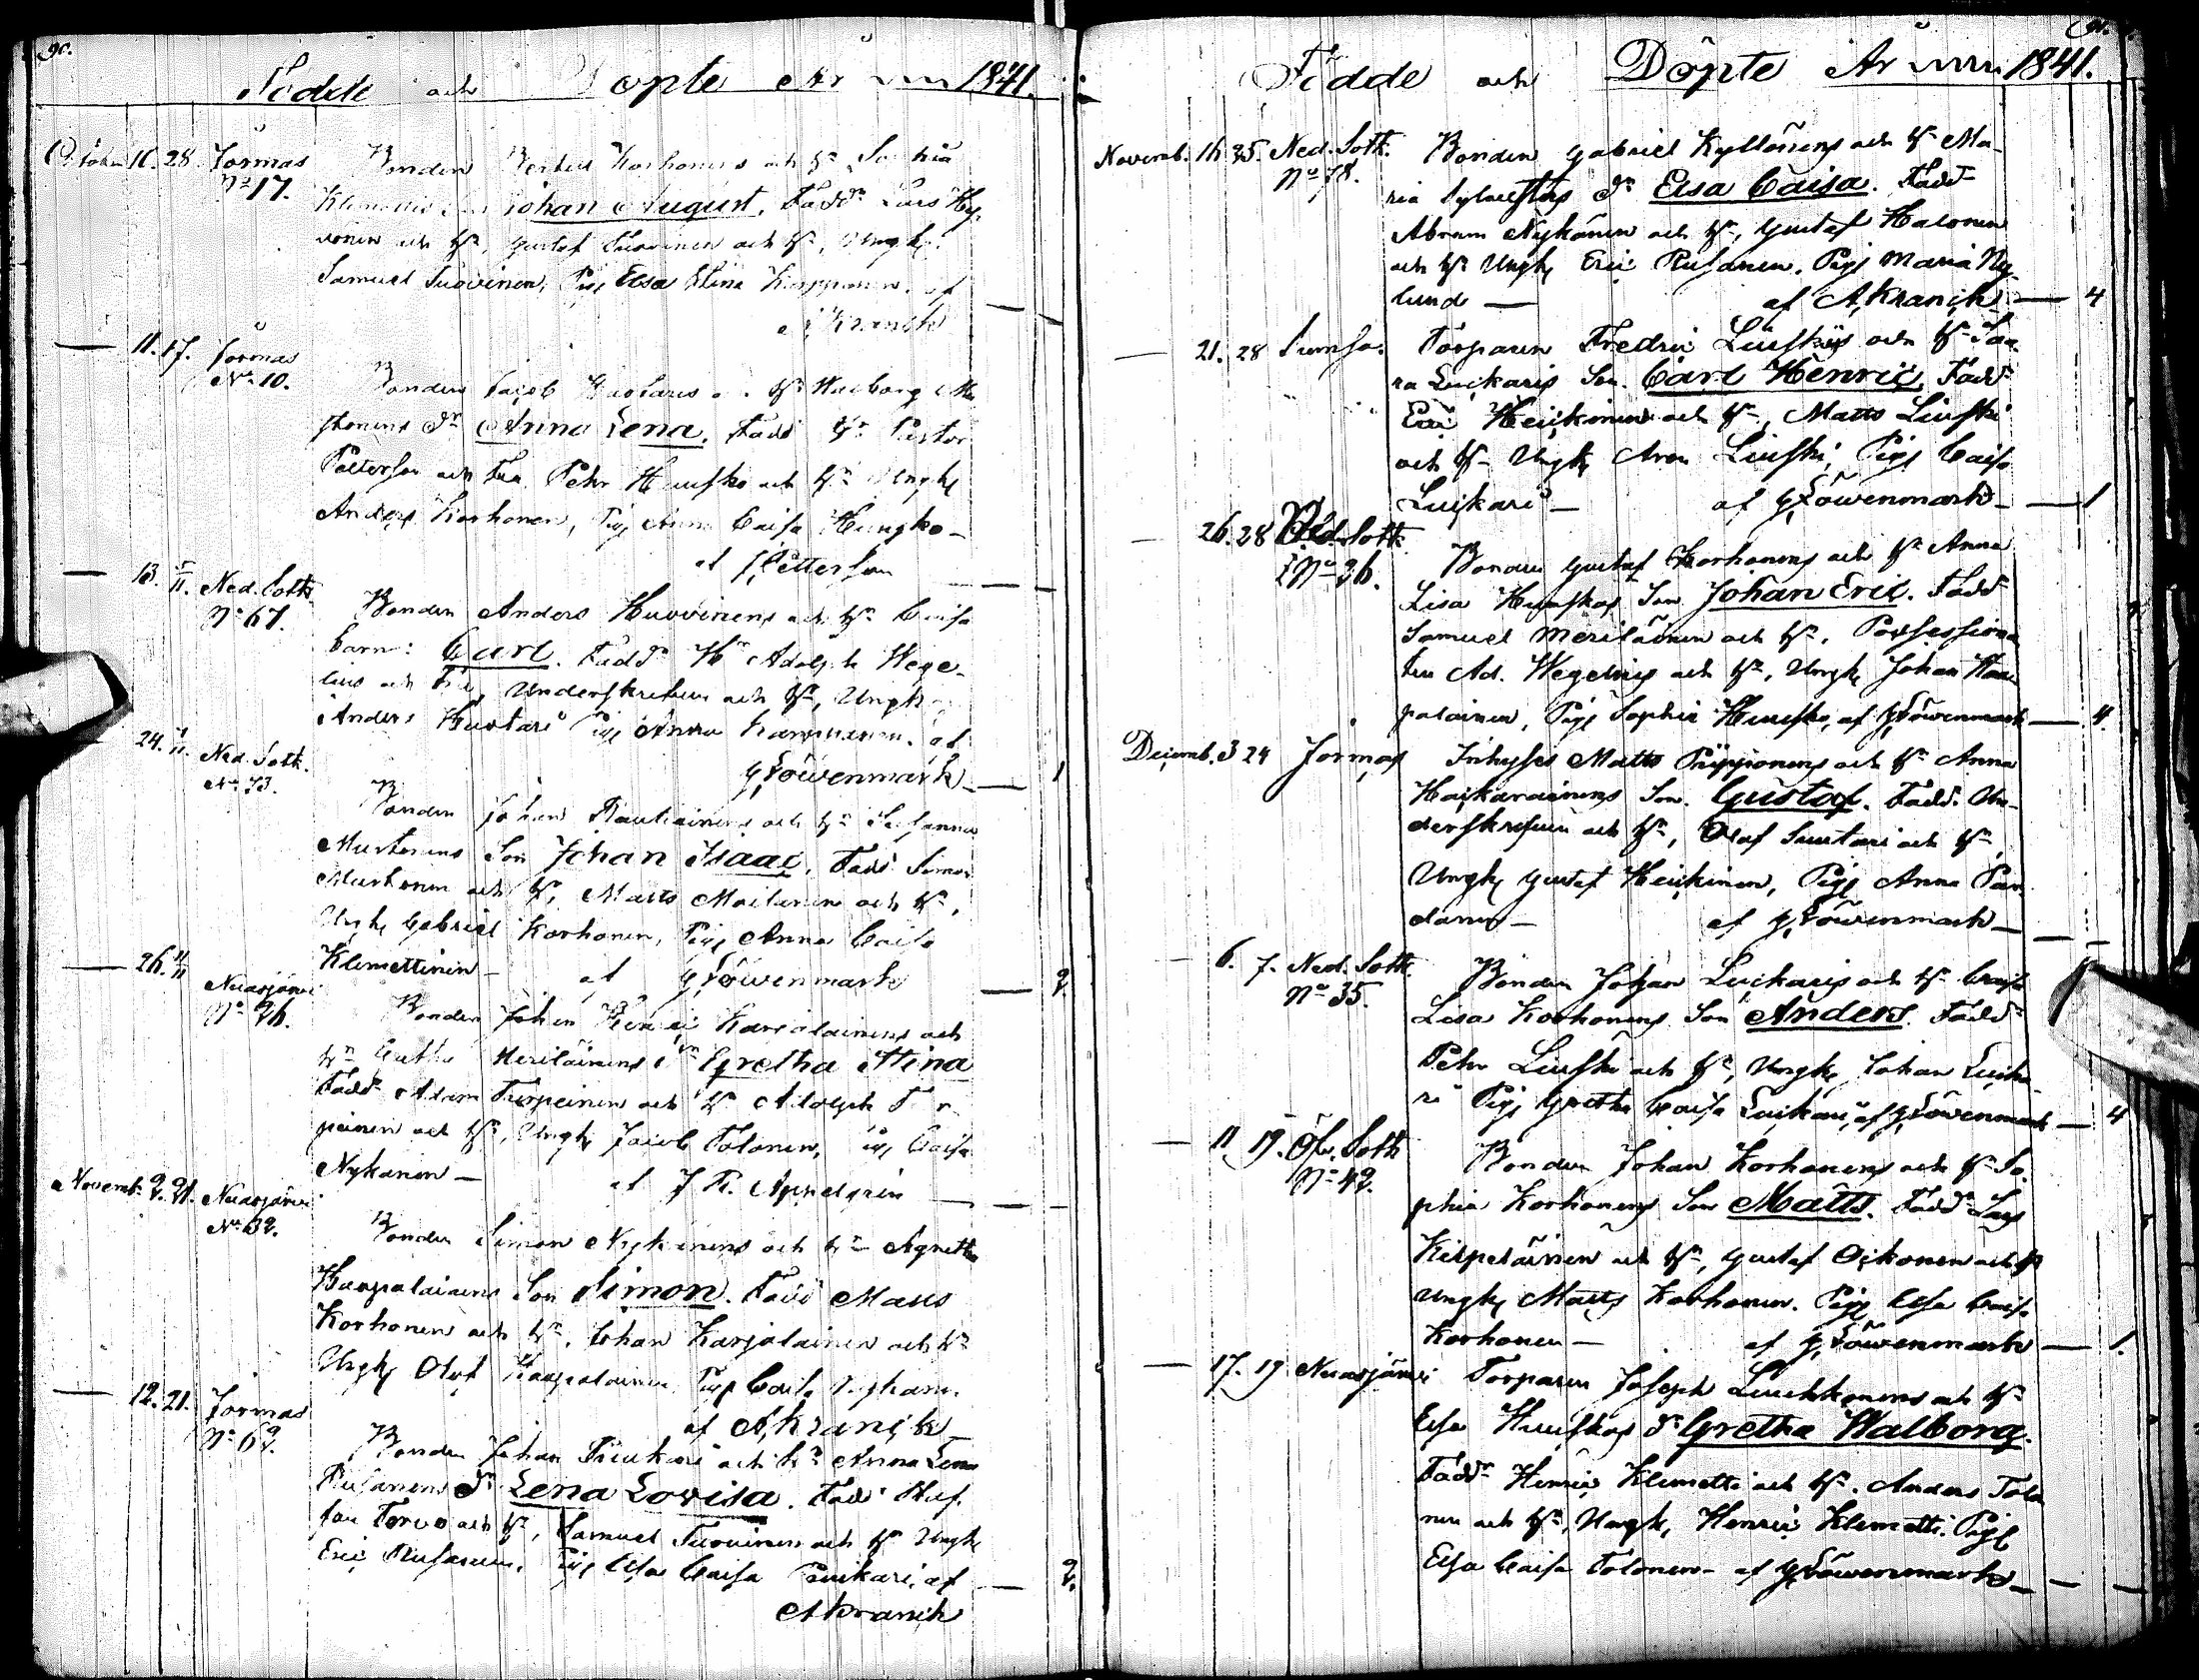 90.
Födde och Döpte År 1841.
October 16. 28. Jormas Bonden Korhonens och H:u Sophia
No 17. Johan August. Fadd: Lars Hy-
vönen och H:u, Gustaf Suovinen och H:u, Yngl:
Samuel Suovinen, Pig: Elsa Stina Karppinen. af
A. Kranck
— 11. 17. Jormas
No 10. Bonden Jacob Huotaris H:u Walborg Mu-
stonens Dr Anna Lena. Fadd H:r Pastor
Petterson och Fru Pehr Huusko och H:u Yngl:
Anders Korhonen, Pig: Anna Caisa Huusko —
af J. Petterson
— 13. 5/11. Ned. Sotk.
No 67. Bonden Anders Huovinens och H:u Caisa
barn: Carl. Fadd: H:r Adolph Wege-
lius och Fru, Underskrifven och H:u, Yngl:
Anders Huotari Pig: Anna af
G. Löwenmark — 1
24. /11. Ned. Sotk.
No 73. Bonden Johan Rautiainens och H:u Susanna
Mustonens Son Johan Isaac. Fadd: Simon
Mustonen och H:u, Matts Moilanen och H:u,
Yngl: Gabriel Korhonen, Pig: Anna Caisa
Klemettinen — af G. Löwenmark — 2.
— 26. 11/11 Nuasjärvi
No 26. Bonden Johan Henric Karjalainens och
H:u Gretha Meriläinens Dr Gretha Stina
Fadd: Adam Turpeinen och H:u Adolph Tur-
peinen och H:u, Yngl: Jacob Tolonen, Pig: Caisa
Nykänen — af J. R. Appelgrén —
Novemb: 2. 21. Nuasjärvi
No 32. Bonden Simon Nykänens och H:u Agnetha
Haapalainens Son Simon. Fadd Matts
Korhonen och H:u, Johan Karjalainen och H:u
Yngl: Olof Haapalainen, Pig: Caisa
af A. Kranck —
— 12. 21. Jormas
No 62. Bonden Johan och H:u Anna Lena
Rusanens Dr Lena Lovisa. Fadd: Stef-
fan Torvo och H:u, Samuel Suovinen och H:u Yngl:
Eric Rusanen, Pig: Elsa Caisa af — 2.
A Kranck
91.
Födde och Döpte År 1841.
Novemb. 16 25. Ned. Sotk. Bonden Gabriel Kyllönens och H:u Ma-
No 78. ria Dr Elsa Caisa. Fadd:
Abram Nykänen och H:u, Gustaf Halonen
och H:u Yngl: Eric Rusanen, Pig: Maria Ny-
lund — af A. Kranck — 4
— 21. 28 Sumsa. Torparen Fredric Liuskis och H:u Sa-
ra Luikaris Son. Carl Henric. Fadd:
Eric Heickinen och H:u, Matts Liuski
och H:u Yngl: Aron Liuski, Pig: Caisa
Luikari — af G. Löwenmark — 1
— 26. 28 Ned. Sotk.
No 36. Bonden Gustaf Korhonens och H:u Anna
Lisa Huuskos Son Johan Eric. Fadd:
Samuel Meriläinen och H:u, Possessiona-
ten Ad. Wegelius och H:u, Yngl: Johan Haa-
palainen, Pig: Sophia Huusko, af G. Löwenmark — 4.
Decemb. 3 24 Jormas Inhyses Matts Piipponens och H:u Anna
Haikarainens Son. Gustaf. Fadd: Un-
derskrifven och H:u, Olof Suutari och H:u,
Yngl: Gustaf Heickinen, Pig: Anna Pan-
danen — af G. Löwenmark —
— 6. 7. Ned. Sotk.
No 35. Bonden Johan Luikaris och H:u Caisa
Lisa Korhonens Son Anders. Fadd:
Pehr Liuski och H:u, Yngl: Johan Luika-
ri Pig: Gretha Caisa Luikari, af G. Löwenmark — 4
— 11 19. Öfv. Sotk
No 42. Bonden Johan Korhonens och H:u So-
phia Korhonens Son Matts. Fadd: Lars
Kilpeläinen och H:u, Gustaf Oikonen och H:u
Yngl: Matts Korhonen. Pig: Elsa Caisa
Korhonen — af G. Löwenmark — 1.
— 17. 19 Nuasjärvi Torparen Joseph Luukkonens och H:u
Elsa Huuskos Dr Gretha Walborg.
Fadd: Henric Klemetti och H:u. Anders Tolo-
nen och H:u, Yngl: Henric Klemetti. Pig:
Elsa Caisa Tolonen — af G. Löwenmark —